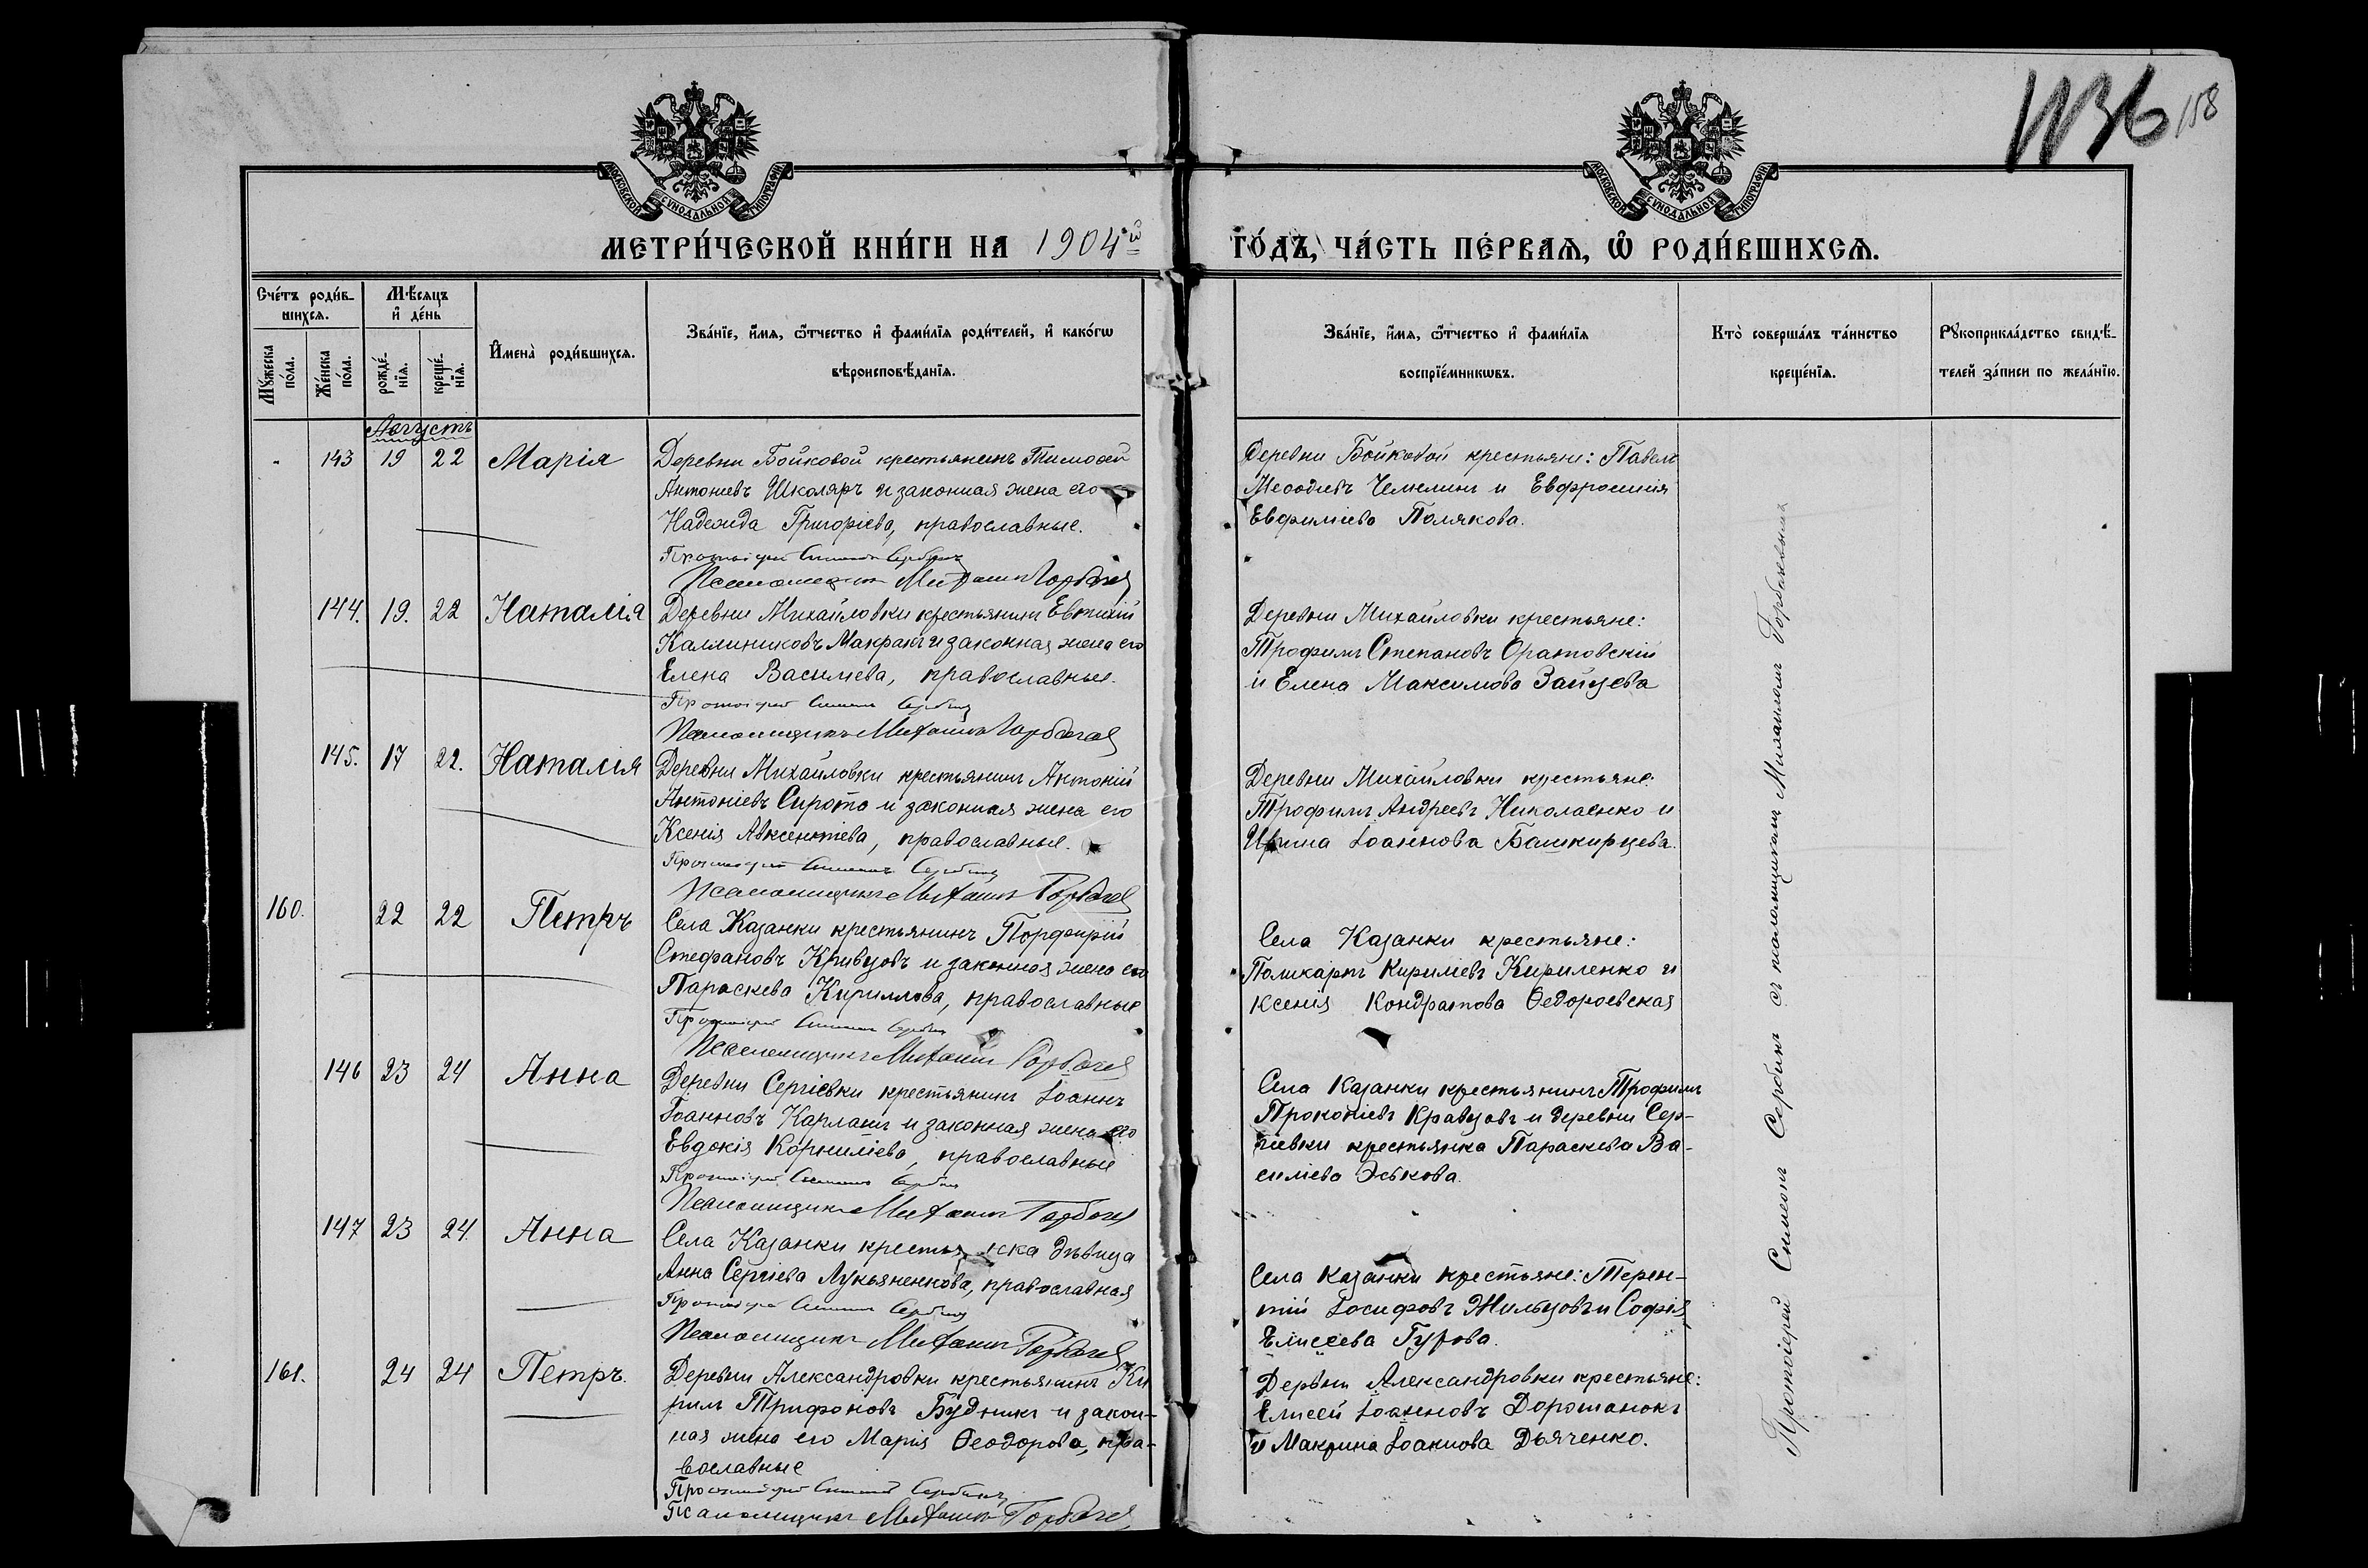 1136 158
МОСКОВСКОЙ СѴНОДАЛЬНОЙ ТИПОГРАФІИ
МОСКОВСКОЙ СѴНОДАЛЬНОЙ ТИПОГРАФІИ
МЕТРИ́ЧЕСКОЙ КНИ́ГИ НА 1904й ГО́ДЪ, ЧА́СТЬ ПЕ́РВАѦ, Ѿ РОДИ́ВШИХСѦ.
Сче́тъ роди́в-
шихсѧ.
Мѣ́сѧцъ
и҆ де́нь
Мꙋ́жеска
по́ла.
Же́нска
по́ла.
рожде́-
нїѧ.
креще́-
нїѧ.
И҆мена̀ роди́вшихсѧ.
Зва́нїе, и҆́мѧ, ѻ҆́тчество и҆ фами́лїѧ роди́телей, и҆ како́гѡ
вѣроисповѣ́данїѧ.
Зва́нїе, и҆́мѧ, ѻ҆́тчество и҆ фами́лїѧ
воспрїе́мникѡвъ.
Кто̀ соверша́лъ та́инство
креще́нїѧ.
Рꙋкоприкла́дство свидѣ́-
телей за́писи по жела́нїю.
Августъ
143 19 22 Марія
Деревни Бойковой крестьянинъ Тимофей
Антоніевъ Школяръ и законная жена его
Надежда Григоріева, православные.
Протоіерей Симеонъ Сербинъ
Псаломщикъ Михаилъ Горбачев
Деревни Бойковой крестьяне: Павелъ
Меѳодіевъ и Евфросинія
Евфиміева Полякова.
144. 19. 22 Наталія
Деревни Михайловки крестьянинъ Евтихій
Каллиниковъ и законная жена его
Елена Василіева, православные.
Протоіерей Симеонъ Сербинъ
Псаломщикъ Михаилъ Горбачев
Деревни Михайловки крестьяне:
Трофимъ Степановъ Оратовскій
и Елена Максимова Зайцева
145. 17 22. Наталія
Деревни Михайловки крестьянинъ Антоній
Антоніевъ Сирота и законная жена его
Ксенія Авксентіева, православные.
Протоіерей Симеонъ Сербинъ
Псаломщикъ Михаилъ Горбачев
Деревни Михайловки крестьяне:
Трофимъ Андреевъ Николаенко и
Ирина Іоаннова Башкирцева.
160. 22 22 Петръ
Села Казанки крестьянинъ Порфирій
Стефановъ Кривцовъ и законная жена его
Параскева Кириллова, православные
Протоіерей Симеонъ Сербинъ
Псаломщикъ Михаилъ Горбачев
Села Казанки крестьяне:
Поликарпъ Кириліевъ Кириленко и
Ксенія Кондратова Ѳедороевская
146 23 24 Анна
Деревни Сергіевки крестьянинъ Іоаннъ
Іоанновъ Карлашъ и законная жена его
Евдокія Корниліева, православные
Протоіерей Симеонъ Сербинъ
Псаломщикъ Михаилъ Горбачев
Села Казанки крестьянинъ Трофимъ
Прокопіевъ Кравцовъ и деревни Сер-
гіевки крестьянка Параскева Ва-
силіева Эськова.
147 23 24. Анна
Села Казанки крестьянка дѣвица
Анна Сергіева Лукьяненкова, православная
Протоіерей Симеонъ Сербинъ
Псаломщикъ Михаилъ Горбачев
Села Казанки крестьяне: Терен-
тій Іосифовъ Жильцовъ и Софія
Елисеева Гурова.
161. 24 24 Петръ.
Деревни Александровки крестьянинъ Ки
рилъ Трифоновъ Будникъ и закон-
ная жена его Марія Ѳеодорова, пра-
вославные
Протоіерей Симеонъ Сербинъ
Псаломщикъ Михаилъ Горбачев
Деревни Александровки крестьяне:
Елисей Іоанновъ Дорошанокъ
и Макрина Іоакиова Дьяченко.
Протоіерей Симеонъ Сербинъ съ псаломщикомъ Михаиломъ Горбачевымъ